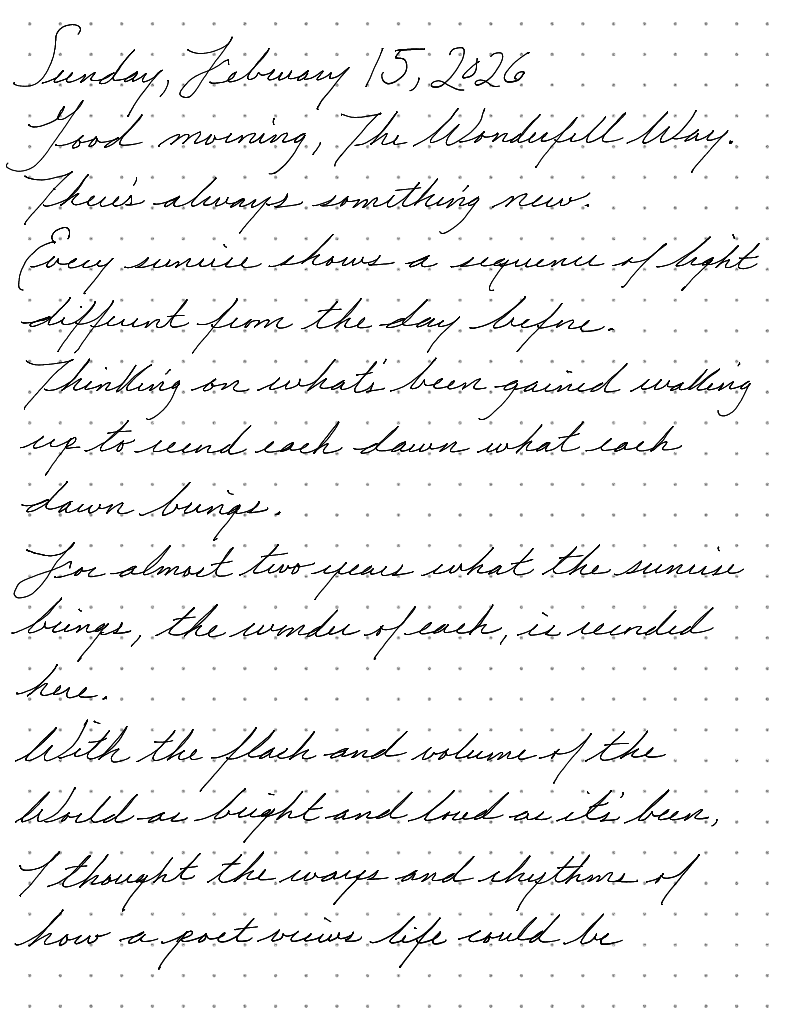 Sunday, February 15, 2026
Good morning, The Wonderfull Way.
There's always something new.
Every sunrise shows a sequence of light
different from the day before.
Thinking on what's been gained walking
up to record each dawn what each
dawn brings.
For almost two years what the sunrise
brings, the wonder of each, is recorded
here.
With the flash and volume of the
World as bright and loud as it's been,
I thought the ways and rhythms of
how a poet views life could be